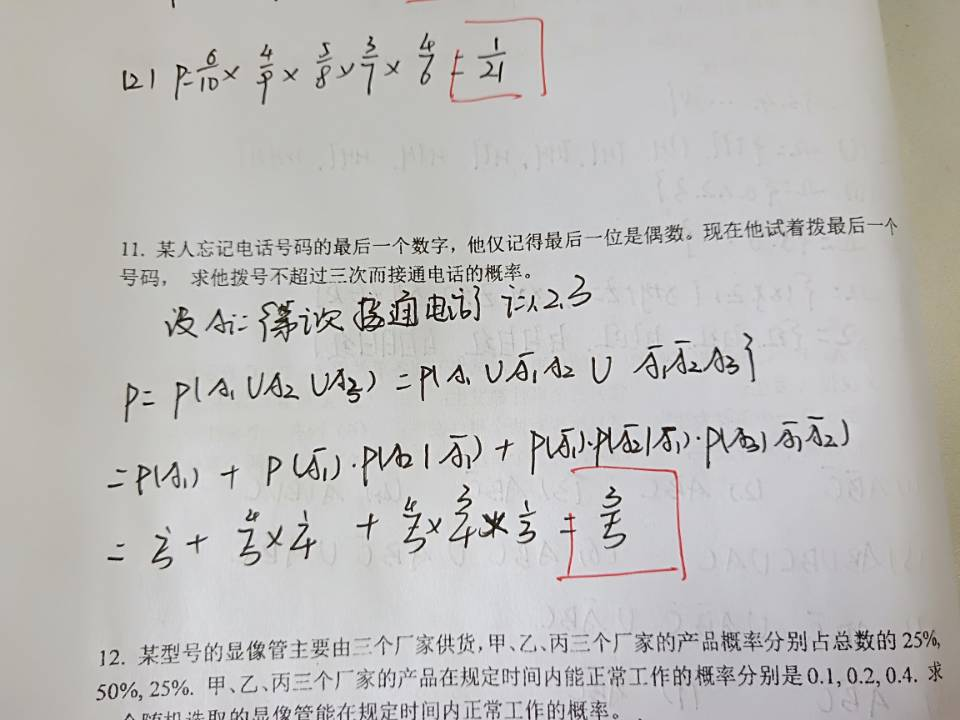 (2) P=6/10×4/9×5/8×3/7×4/6=1/21
11. 某人忘记电话号码的最后一个数字，他仅记得最后一位是偶数。现在他试着拨最后一个
号码， 求他拨号不超过三次而接通电话的概率。
设Ai={第i次接通电话} i=1,2,3
P=P(A₁∪A₂∪A₃)=P{A₁∪Ā₁A₂∪Ā₁Ā₂A₃}
=P(A₁)+P(Ā₁)·P(A₂|Ā₁)+P(Ā₁)·P(Ā₂|Ā₁)·P(A₃|Ā₁Ā₂)
=1/5+4/5×1/4+4/5×3/4×1/3=3/5
12. 某型号的显像管主要由三个厂家供货，甲、乙、丙三个厂家的产品概率分别占总数的25%,
50%, 25%. 甲、乙、丙三个厂家的产品在规定时间内能正常工作的概率分别是0.1, 0.2, 0.4. 求
个随机选取的显像管能在规定时间内正常工作的概率。